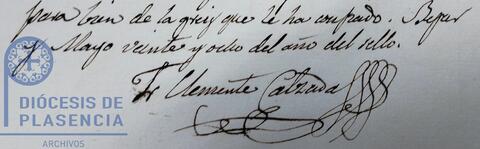 para bien de la grey que le ha confiado. Bejar
y Mayo veinte y ocho del año del sello.
Fr Clemente Calzada
DIÓCESIS DE
PLASENCIA
ARCHIVOS